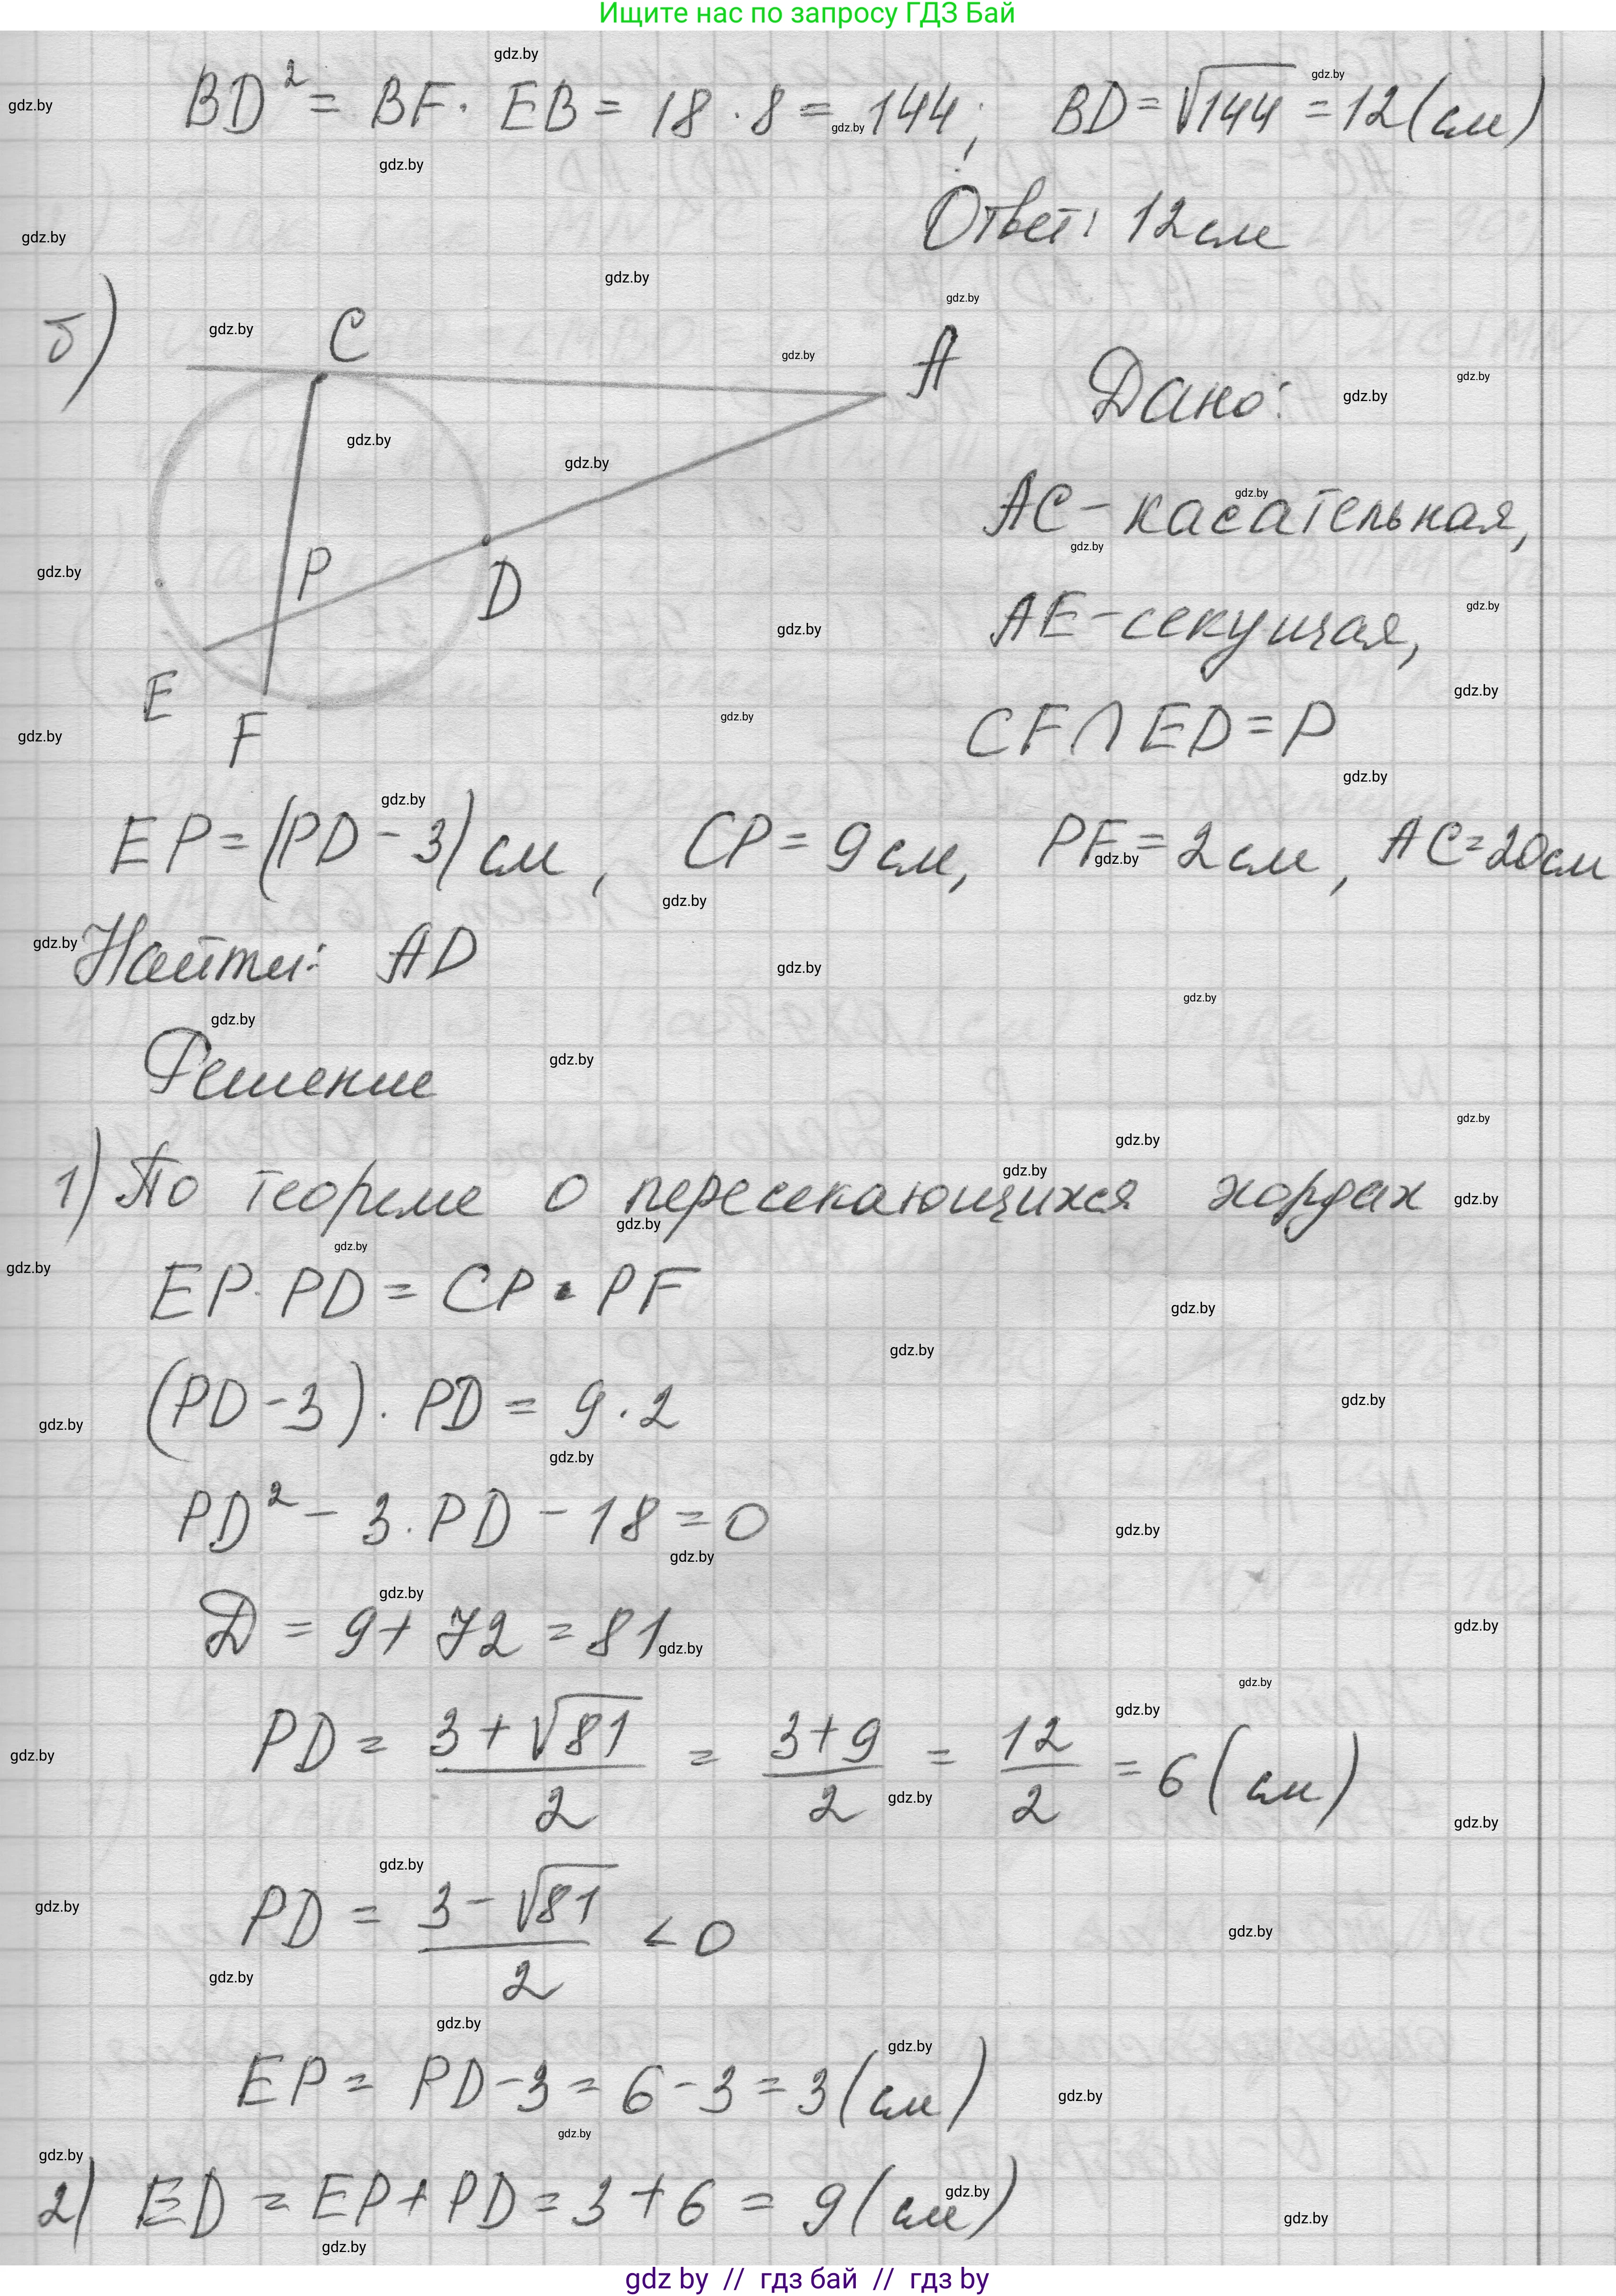 Ищите нас по запросу ГДЗ Бай
BD² = BF · EB = 18 · 8 = 144; BD = √144 = 12 (см)
Ответ: 12 см
б)
C
A
P
D
E
F
Дано:
AC - касательная,
AE - секущая,
CF ∩ ED = P
EP = (PD - 3) см, CP = 9 см, PF = 2 см, AC = 20 см
Найти: AD
Решение
1) По теореме о пересекающихся хордах
EP · PD = CP · PF
(PD - 3) · PD = 9 · 2
PD² - 3 · PD - 18 = 0
D = 9 + 72 = 81
PD = (3 + √81)/2 = (3 + 9)/2 = 12/2 = 6 (см)
PD = (3 - √81)/2 < 0
EP = PD - 3 = 6 - 3 = 3 (см)
2) ED = EP + PD = 3 + 6 = 9 (см)
gdz by // гдз бай // гдз by